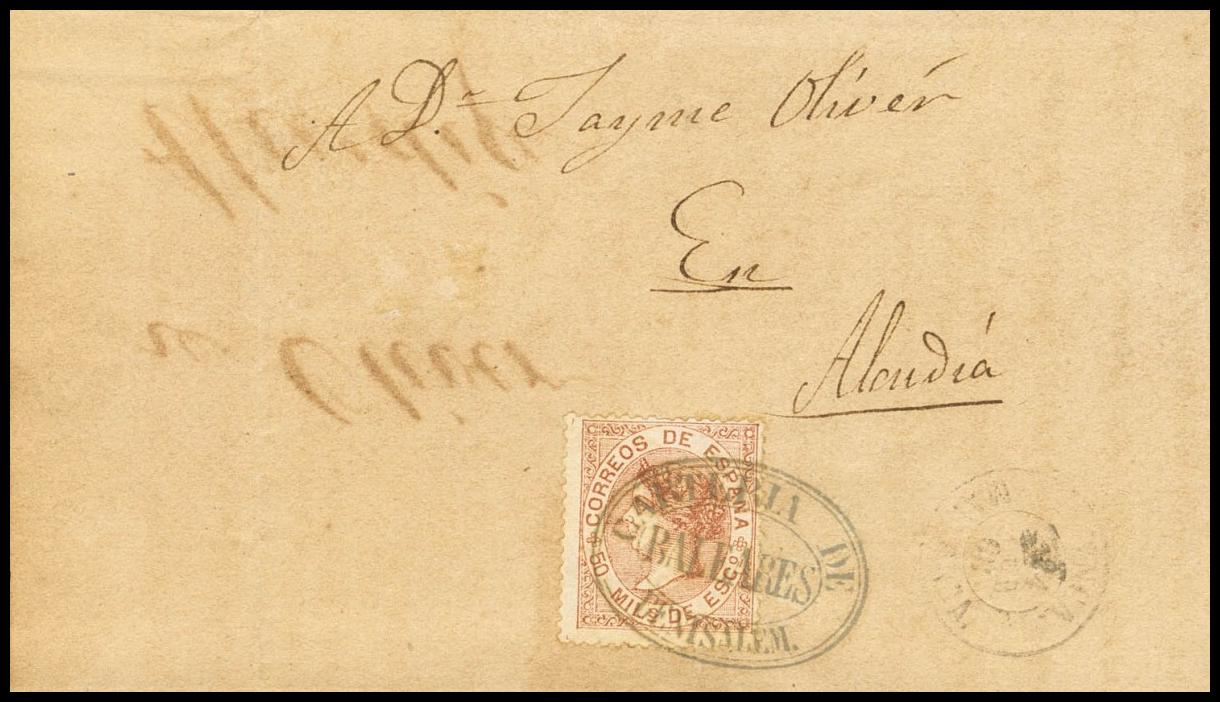 A Dn. Jayme Olivér
En
Alcudiá
CORREOS DE ESPAÑA
50 MILS DE ESCO
CARTERIA DE
BALEARES
BENISALEM.